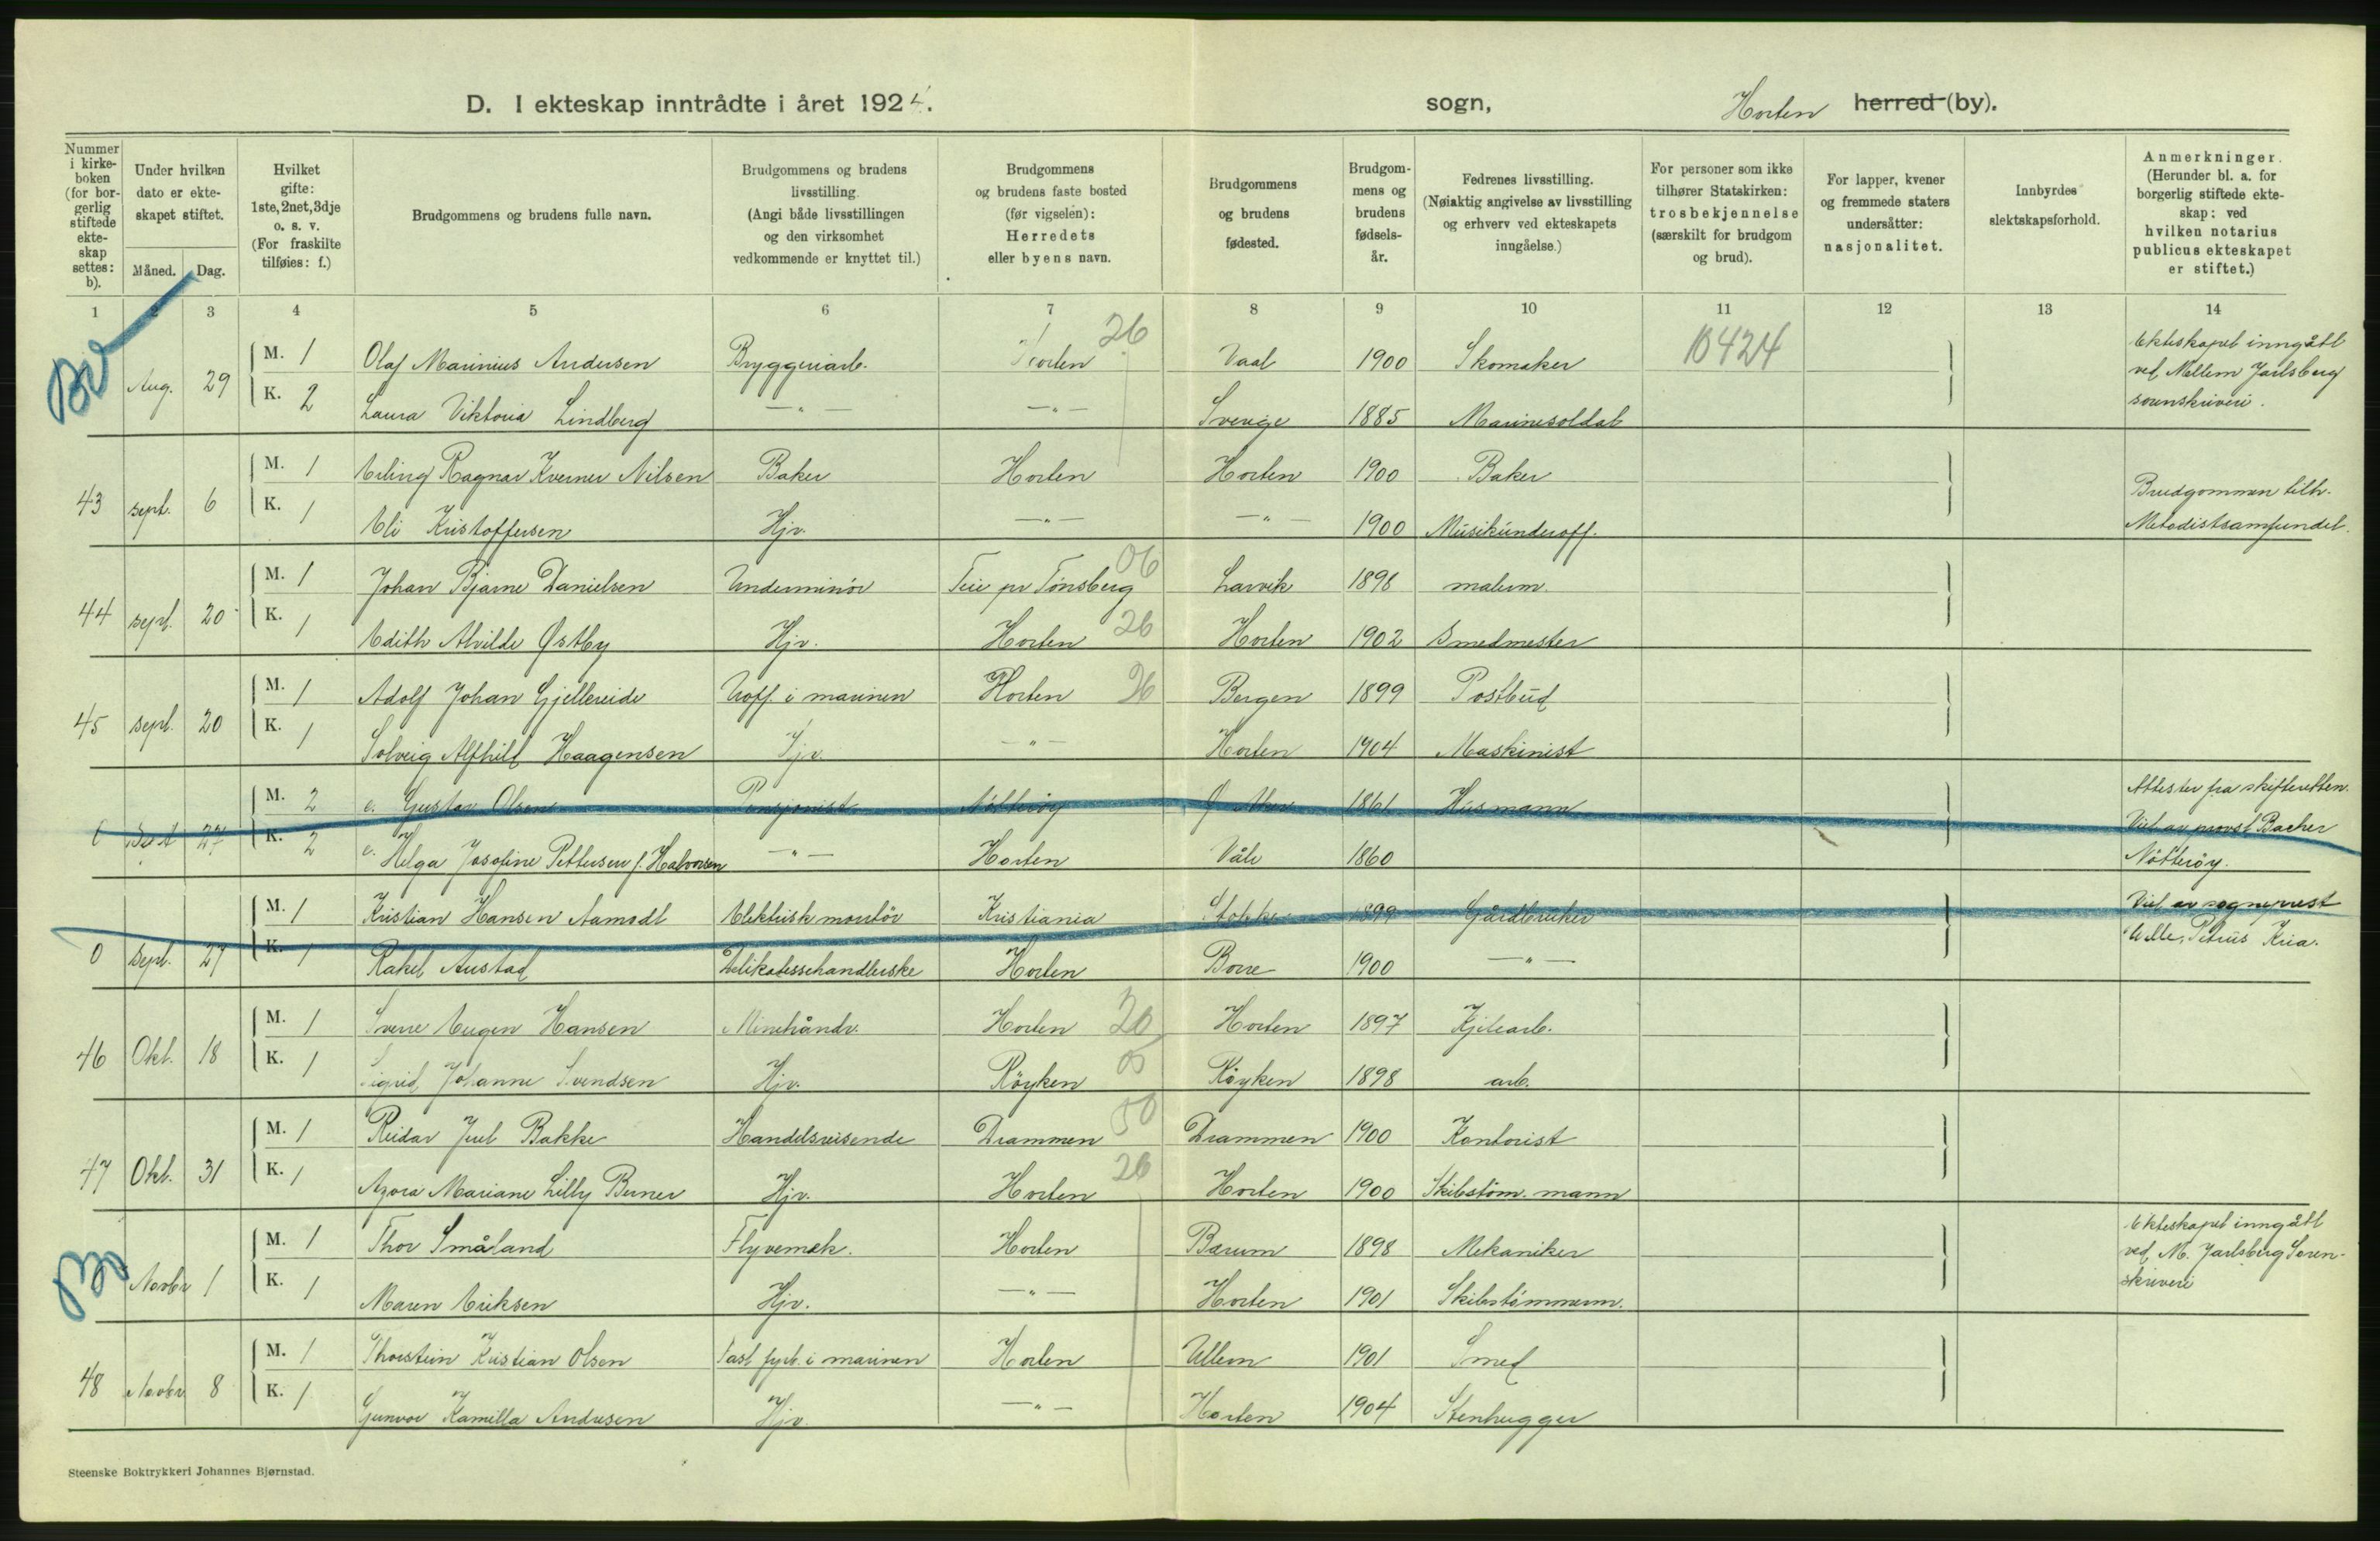 D. I ekteskap inntrådte i året 1924.
sogn, Horten herred (by).
Nummer i kirkeboken (for borgerlig stiftede ekteskap settes: b).
Under hvilken dato er ekteskapet stiftet.
Måned. Dag.
Hvilket gifte: 1ste, 2net, 3dje o. s. v. (For fraskilte tilføies: f.)
Brudgommens og brudens fulle navn.
Brudgommens og brudens livsstilling. (Angi både livsstillingen og den virksomhet vedkommende er knyttet til.)
Brudgommens og brudens faste bosted (før vigselen): Herredets eller byens navn.
Brudgommens og brudens fødested.
Brudgommens og brudens fødselsår.
Fedrenes livsstilling. (Nøiaktig angivelse av livsstilling og erhverv ved ekteskapets inngåelse.)
For personer som ikke tilhører Statskirken: trosbekjennelse (særskilt for brudgom og brud).
For lapper, kvener og fremmede staters undersåtter: nasjonalitet.
Innbyrdes slektskapsforhold.
Anmerkninger. (Herunder bl. a. for borgerlig stiftede ekteskap: ved hvilken notarius publicus ekteskapet er stiftet.)
1 2 3 4 5 6 7 8 9 10 11 12 13 14
Aug. 29 M. 1 Olaf Marinius Andersen Bryggeriarb. Horten 26 Vaal 1900 Skomaker 10424 Ekteskapet inngått ved Mellem Jarlsberg sorenskriveri.
K. 2 Laura Viktoria Lindberg —"— —"— Sverige 1885 Marinesoldat
43 sept. 6 M. 1 Erling Ragnar Kverner Nilsen Baker Horten Horten 1900 Baker Brudgommen tilh. Metodistsamfundet.
K. 1 Eli Kristoffersen Hjv. —"— —"— 1900 Musikunderoff.
44 sept. 20 M. 1 Johan Bjarne Danielsen Underminör Teie pr Tönsberg 06 Larvik 1898 malerm.
K. 1 Edith Alvilde Østby Hjv. Horten 26 Horten 1902 Smedmester
45 sept. 20 M. 1 Adolf Johan Gjellereide Uoff. i marinen Horten 26 Bergen 1899 Postbud
K. 1 Solveig Alfhild Haagensen Hjv. —"— Horten 1904 Maskinist
0 Sept 27 M. 2 e. Gustav Olsen Pensjonist Nötteröy 1861 Husmann Attester fra skifteretten. Viet av provst Bacher Nötteröy.
K. 2 e. Helga Josefine Pettersen f. Halvorsen —"— Horten Våle 1860
0 Sept. 27 M. 1 Kristian Hansen Aamodt Elektrisk montör Kristiania Stokke 1899 Gårdbruker Viet av sogneprest Petrus Kria.
K. 1 Rakel Austad Delikatessehandlerske Horten Borre 1900 —"—
46 Okt. 18 M. 1 Sverre Eugen Hansen Minehåndv. Horten 20 Horten 1897 Kjelearb.
K. 1 Sigrid Johanne Svendsen Hjv. Röyken 05 Röyken 1898 arb.
47 Okt. 31 M. 1 Reidar Juel Bakke Handelsreisende Drammen 50 Drammen 1900 Kontorist
K. 1 Azora Mariane Lilly Berner Hjv. Horten 26 Horten 1900 Skibstöm. mann
Novbr 1 M. 1 Thor Småland Flyvemek. Horten Bærum 1898 Mekaniker Ekteskapet inngått ved M. Jarlsberg Sorenskriveri
K. 1 Maren Eriksen Hjv. —"— Horten 1901 Skibstömmerm.
48 Novbr 8 M. 1 Thorstein Kristian Olsen Fast fyrb. i marinen Horten Ullern 1901 Smed
K. 1 Gunvor Kamilla Andresen Hjv. —"— Horten 1904 Stenhugger
Steenske Boktrykkeri Johannes Bjørnstad.